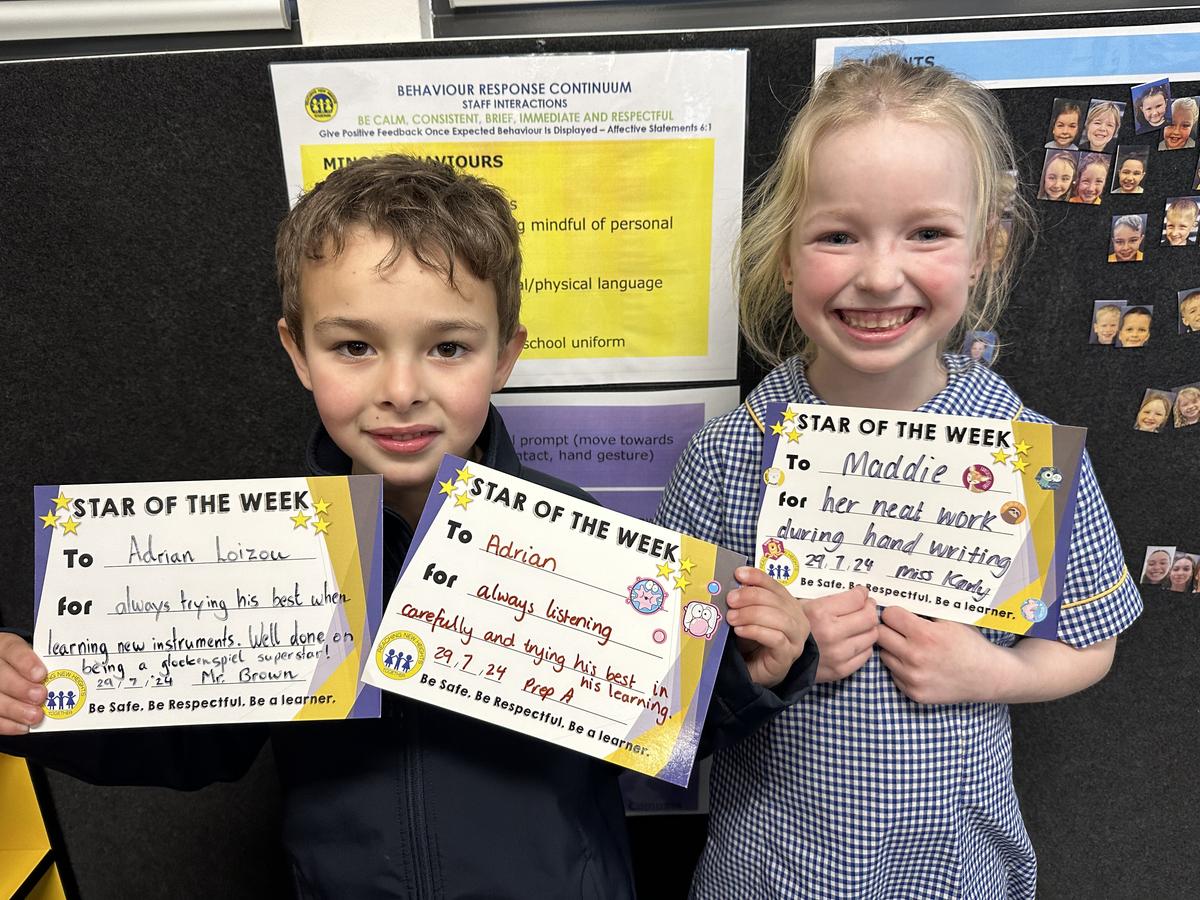 BEHAVIOUR RESPONSE CONTINUUM
STAFF INTERACTIONS
BE CALM, CONSISTENT, BRIEF, IMMEDIATE AND RESPECTFUL
Give Positive Feedback Once Expected Behaviour Is Displayed – Affective Statements 6:1
g mindful of personal
al/physical language
school uniform
l prompt (move towards
ntact, hand gesture)
STAR OF THE WEEK
To Adrian Loizou
for always trying his best when
learning new instruments. Well done on
being a glockenspiel superstar!
29/7/24 Mr. Brown
Be Safe. Be Respectful. Be a learner.
STAR OF THE WEEK
To Adrian
for always listening
carefully and trying his best in
his learning.
29/7/24 Prep A
REACHING NEW HEIGHTS
TOGETHER
Be Safe. Be Respectful. Be a learner.
STAR OF THE WEEK
To Maddie
for her neat work
during hand writing
29/7/24 Miss
Be Safe. Be Respectful. Be a learner.